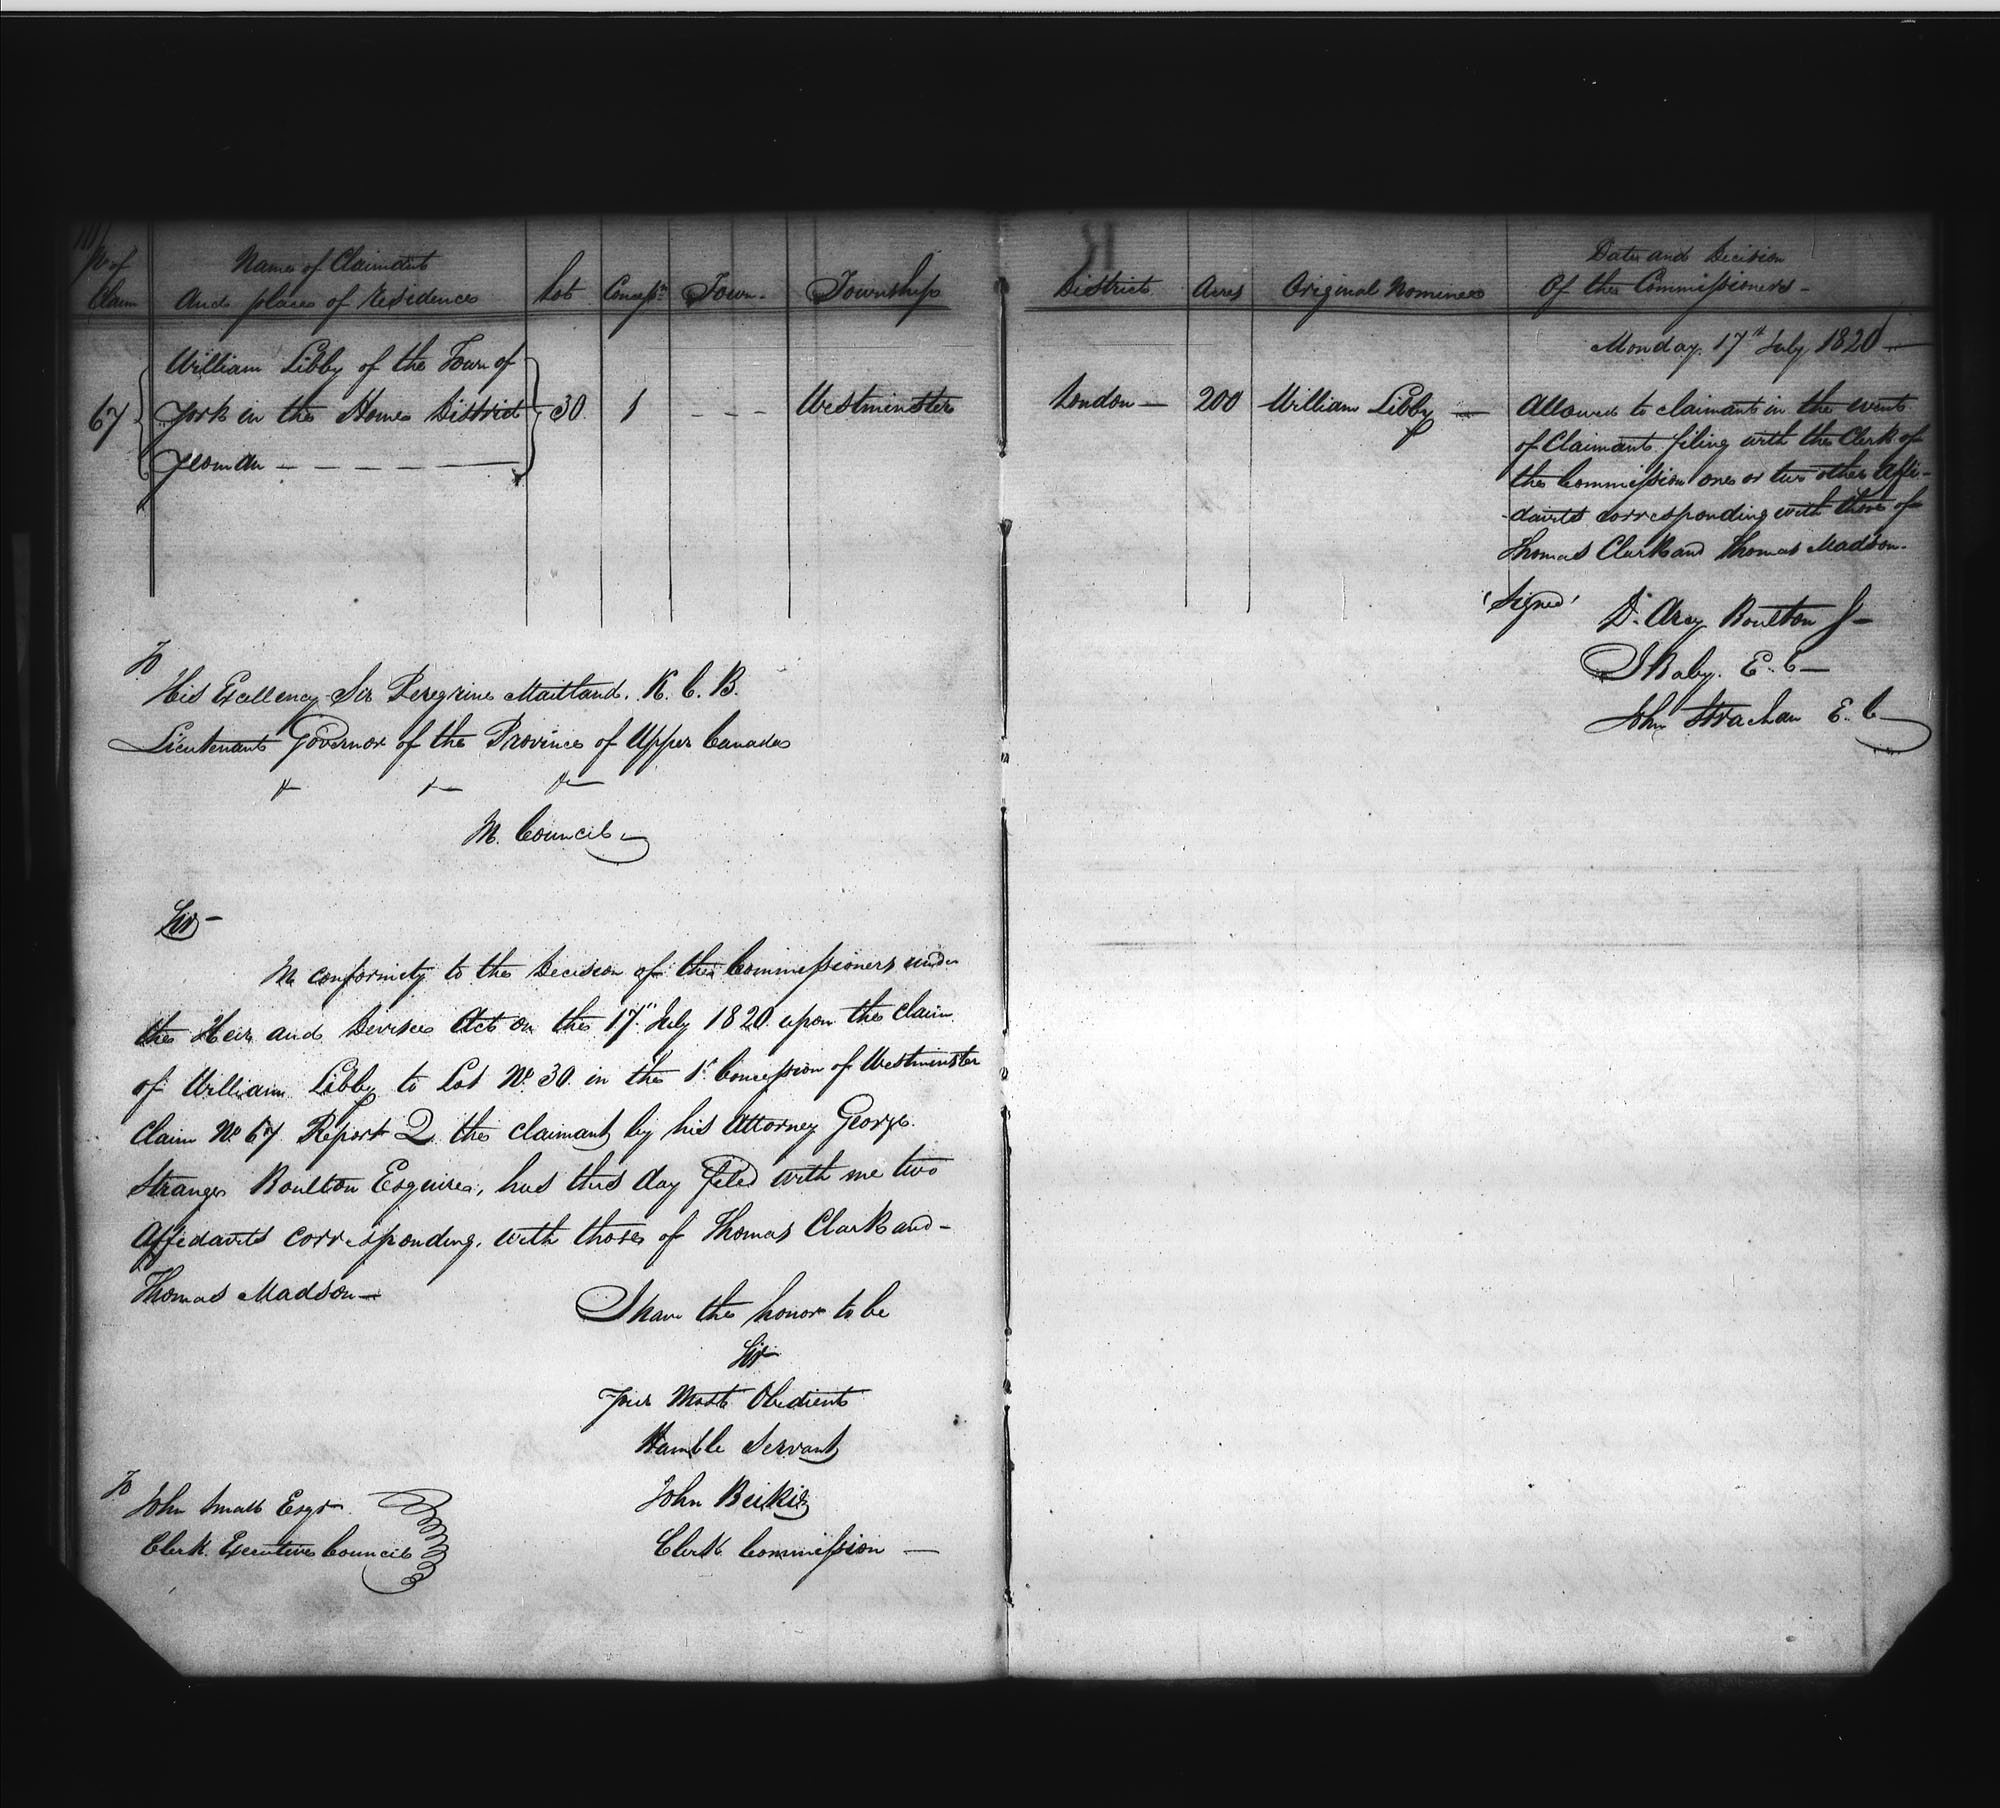 No of Claim
Names of Claimants
And places of Residence
Lot
Concessn
Town
Township
District
Acres
Original Nominee
Date and Decision
Of the Commissioners
Monday 17th July 1820
67
William Libby of the Town of
York in the Home District
Yeoman
30
1
Westminster
London
200
William Libby
Allowed to claimant in the event
of Claimant filing with the Clerk of
the Commission one or two other Affi-
-davits corresponding with those of
Thomas Clark and Thomas Madson.
'Signed'
D'Arcy Boulton J
J Baby. E. C
John Strachan E. C
To
His Excellency Sir Peregrine Maitland. K. C. B.
Lieutenant Governor of the Province of Upper Canada
In Council
Sir
In conformity to the Decision of the Commissioners under
the Heir and Devisee Act on the 17th July 1820 upon the claim
of William Libby to Lot No 30. in the 1st Concession of Westminster
Claim No 67 Report 2 the claimant by his Attorney George
Strange Boulton Esquire, has this day filed with me two
Affidavits corresponding with those of Thomas Clark and
Thomas Madson
I have the honor to be
Sir
Your Most Obedient
Humble Servant
John Beikie
Clerk Commission
To
John Small Esqr
Clerk Executive Council